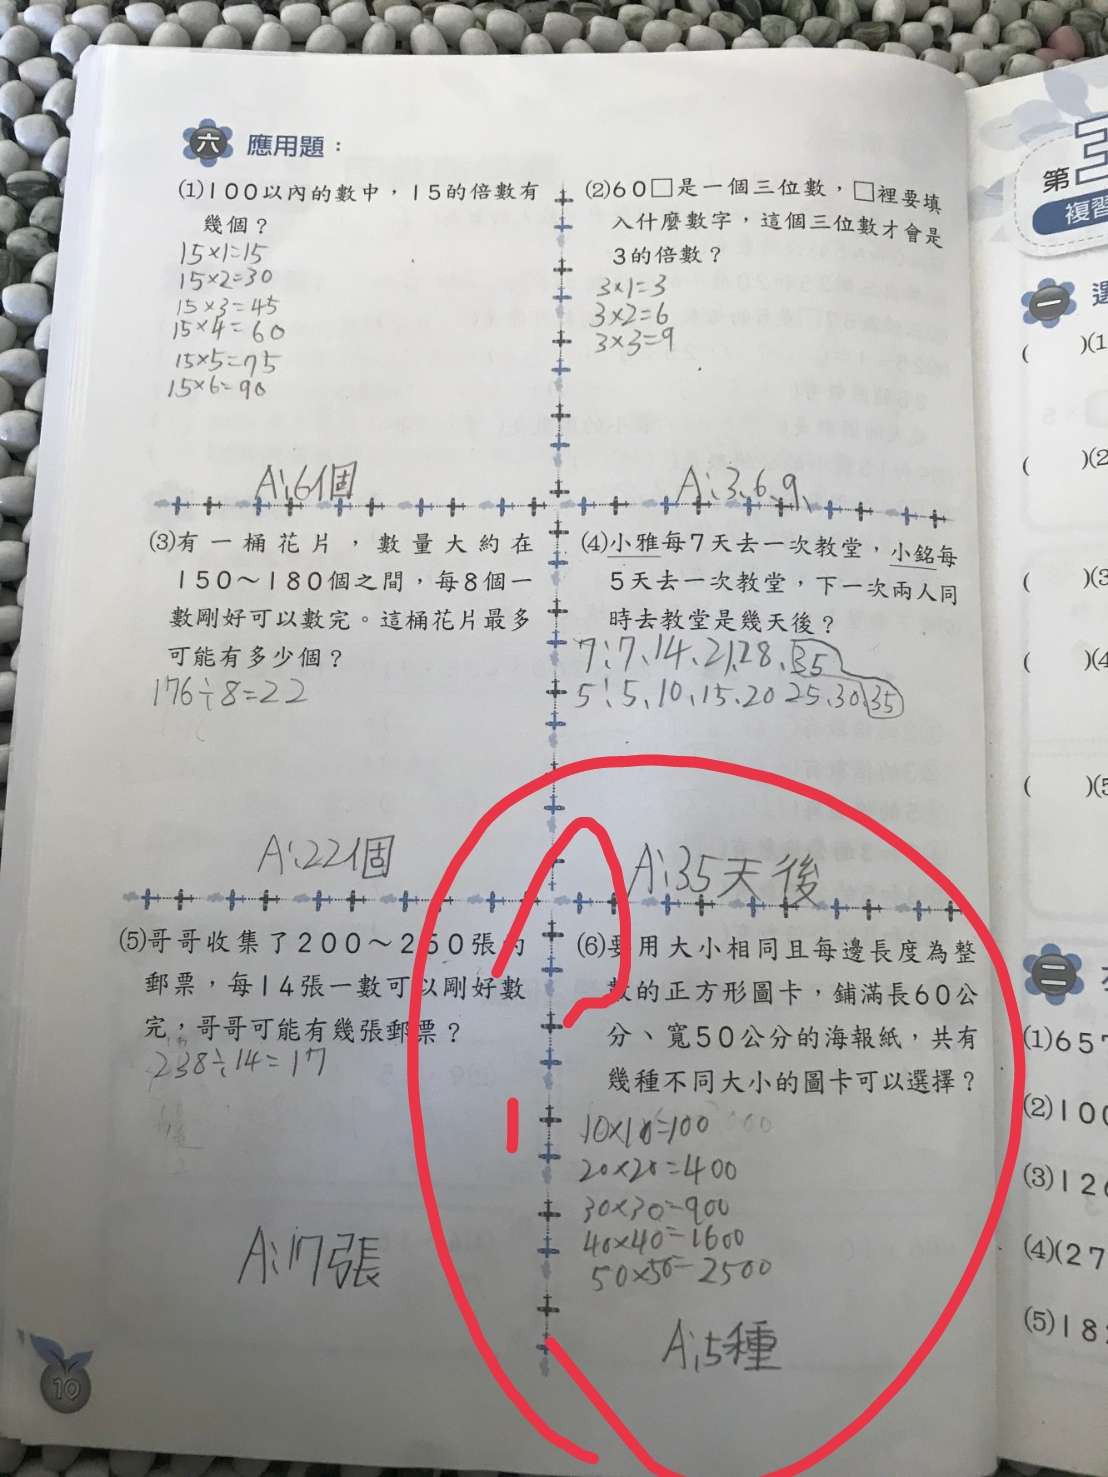 六 應用題：
(1)100以內的數中，15的倍數有
幾個？
15×1=15
15×2=30
15×3=45
15×4=60
15×5=75
15×6=90
A:6個
(2)60□是一個三位數，□裡要填
入什麼數字，這個三位數才會是
3的倍數？
3×1=3
3×2=6
3×3=9
A:3、6、9、
(3)有一桶花片，數量大約在
150～180個之間，每8個一
數剛好可以數完。這桶花片最多
可能有多少個？
176÷8=22
A:22個
(4)小雅每7天去一次教堂，小銘每
5天去一次教堂，下一次兩人同
時去教堂是幾天後？
7:7、14、21、28、35
5:5、10、15、20 25、30、35
A:35天後
(5)哥哥收集了200～250張的
郵票，每14張一數可以剛好數
完，哥哥可能有幾張郵票？
238÷14=17
A:17張
(6)要用大小相同且每邊長度為整
數的正方形圖卡，鋪滿長60公
分、寬50公分的海報紙，共有
幾種不同大小的圖卡可以選擇？
10×10=100
20×20=400
30×30=900
40×40=1600
50×50=2500
A:5種
10
第3
複習
一 選
( )(1
( )(2
( )(3
( )(4
( )(5
二
(1)657
(2)100
(3)126
(4)(27
(5)18